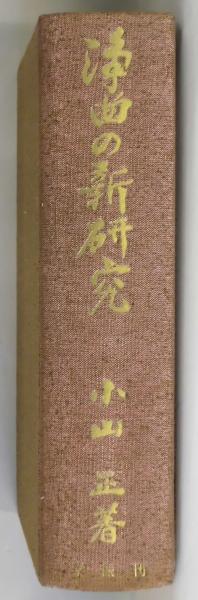 浄曲の新研究
小山正著